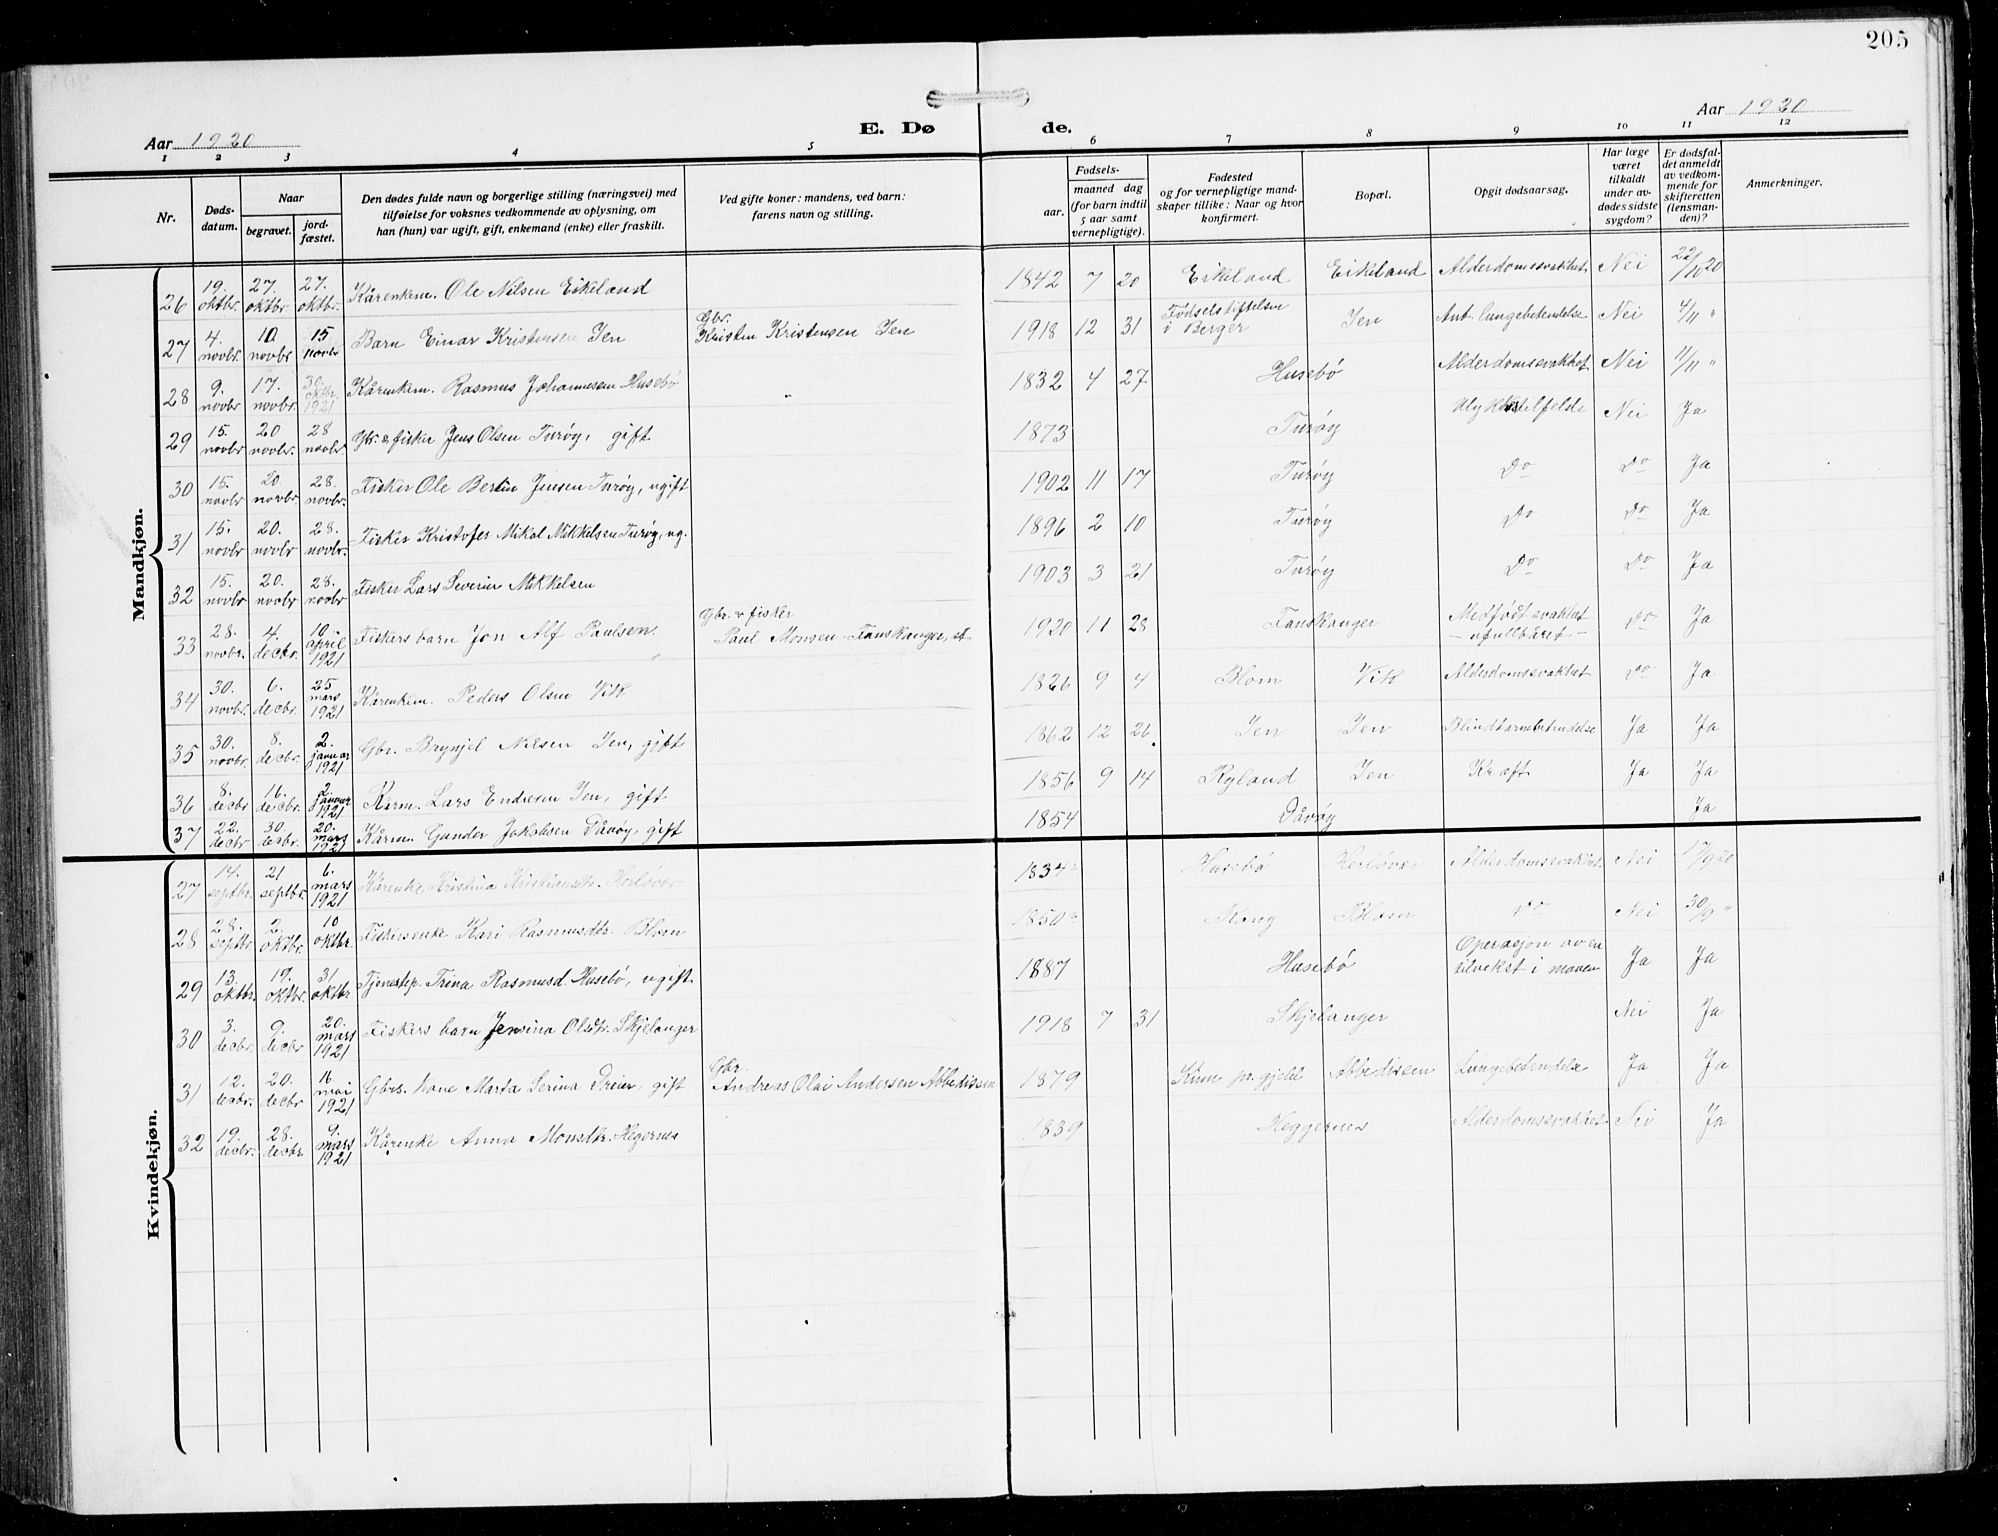 205
Aar 1920
E. Dø
de.
Aar 1920
1 2 3 4 5 6 7 8 9 10 11 12
Nr.
Døds-
datum.
Naar
begravet.
jord-
fæstet.
Den dødes fulde navn og borgerlige stilling (næringsvei) med
tilføielse for voksnes vedkommende av oplysning, om
han (hun) var ugift, gift, enkemand (enke) eller fraskilt.
Ved gifte koner: mandens, ved barn:
farens navn og stilling.
Fødsels-
aar.
maaned dag
(for barn indtil
5 aar samt
vernepligtige).
Fødested
og for vernepligtige mand-
skaper tillike: Naar og hvor
konfirmert.
Bopæl.
Opgit dødsaarsag.
Har læge
været
tilkaldt
under av-
dødes sidste
sygdom?
Er dødsfal-
det anmeldt
av vedkom-
mende for
skifteretten
(lensman-
den)?
Anmerkninger.
Mandkjøn.
26 19. oktbr. 27. oktbr. 27. oktbr. Kårenkem. Ole Nilsen Eikeland 1842 7 20 Eikeland Eikeland Alderdomssvakhet Nei 22/10 20
27 4. novbr. 10 novbr. 15 novbr Barn Einar Kristensen Jen Gbr. Kristen Kristensen Jen 1918 12 31 Fødselstiftelsen i Bergen Jen Ant. lungebetendelse Nei 4/11 "
28 9. novbr 17. novbr. 30. oktbr. 1921 Kårenkem. Rasmus Johannesen Husebö 1832 4 27 Husebö Alderdomssvakhet Nei 11/11 "
29 15. novbr 20 novbr. 28 novbr. Gbr. & fisker Jens Olsen Turøy, gift 1873 Turøy Ulykkestilfelde Nei Ja
30 15. novbr 20. novbr. 28. novbr. Fisker Ole Bertin Jensen Turøy, ugift 1902 11 17 Turøy Do Do Ja
31 15. novbr 20. novbr 28. novbr. Fisker Kristofer Mikal Mikkelsen Turøy, ug. 1896 2 10 Turøy Do Do Ja
32 15. novbr 20. novbr 28. novbr Fisker Lars Severin Mikkelsen 1903 3 21 Turøy Do Do Ja
33 28. novbr. 4. decbr. 10 april 1921 Fiskers barn Jon Alf Paulsen. Gbr. & fisker Paul Monsen Fanskanger, 1920 11 28 Fanskanger Medfödt svakhet – ufullbåret – Do Ja
34 30. novbr. 6. decbr. 25 mars 1921 Kårenkem. Peders Olsen Vik 1826 9 4 Blom Vik Alderdomssvakhet Do Ja
35 30. novbr. 8. decbr. 2. januar 1921 Gbr. Brynjel Nilsen Jen, gift 1862 12 26 Jen Jen Blindtarmbetendelse Ja Ja
36 8. decbr 16. decbr. 2. januar 1921 Karm. Lars Endresen Jen, gift 1856 9 14 Ryland Jen Kræft Ja Ja
37 22. decbr 30. decbr. 20. mars 1921 Kårm. Gunder Jakobsen Dåvöy, gift 1854 Dåvöy Ja
Kvindekjøn.
27 14. septbr. 21 septbr. 6. mars 1921 Kårenke Kristina Kristiansdr. Herløver 1834 Husebö Herløver Alderdomssvakhet Nei 17/9 20
28 28. septbr. 2. oktbr. 10 oktbr. Fiskersenke Kari Rasmusdtr. Blom 1850 Rong Blom Do Nei 30/9 "
29 13. oktbr. 19. oktbr. 31 oktbr Tjenestep. Trina Rasmusd. Husebö, ugift 1887 Husebö Operasjon av en tilvekst i maven Ja Ja
30 3. decbr. 9. decbr 20. mars 1921 Fiskers barn Jensina Olsdtr. Skjelanger 1918 7 31 Skjelanger Nei Ja
31 12. decbr. 20. decbr 16. mai 1921 Gbrs. kone Marta Serina Dreier, gift Gbr. Andreas Olai Andersen Abbedissen 1879 Kinn pr. gjeld Abbedissen Lungebetendelse Ja Ja
32 19. decbr. 28. decbr 9. mars 1921 Kårenke Anna Monsdtr. Hegernes 1839 Heggernes Alderdomssvakhet Nei Ja